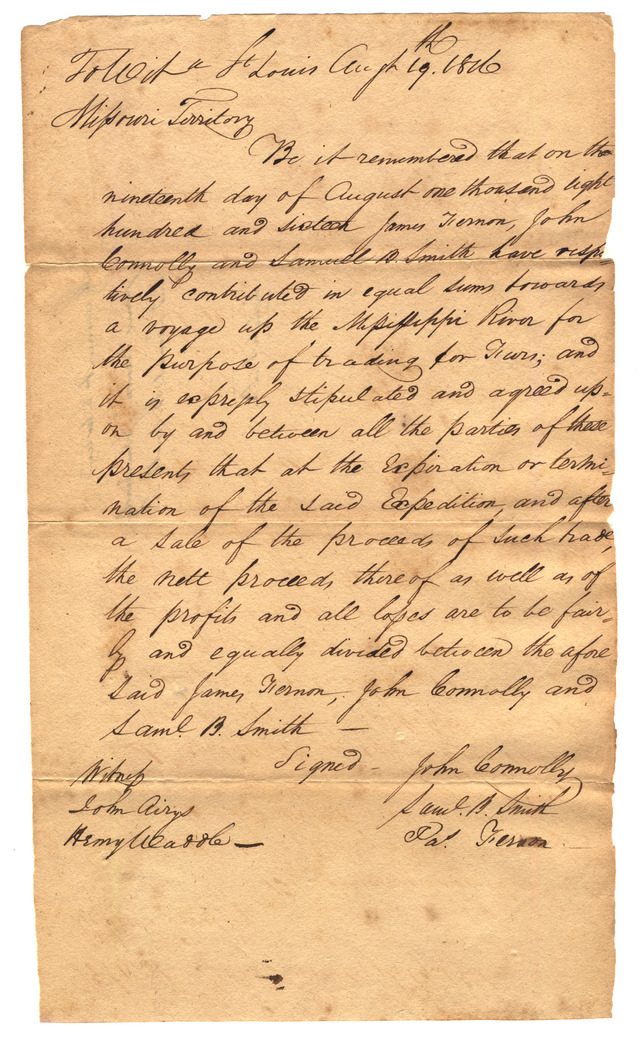 To Wit St Louis Augt 19th. 1816
Missouri Territory
Be it remembered that on the
nineteenth day of August one thousand eight
hundred and sixteen James Fernon, John
Connolly and Samuel B. Smith have respec
tively contributed in equal sums towards
a voyage up the Mississippi River for
the purpose of trading for Furs; and
it is expressly stipulated and agreed up=
on by and between all the parties of these
presents that at the Expiration or termi=
nation of the said Expedition, and after
a sale of the proceeds of such trade,
the nett proceeds thereof as well as of
the profits and all losses are to be fair=
ly and equally divided between the afore
said James Fernon, John Connolly and
Saml. B. Smith —
Signed - John Connolly
Witness
Saml. B. Smith
John Airys
Henry Waddle — Jas. Fernon